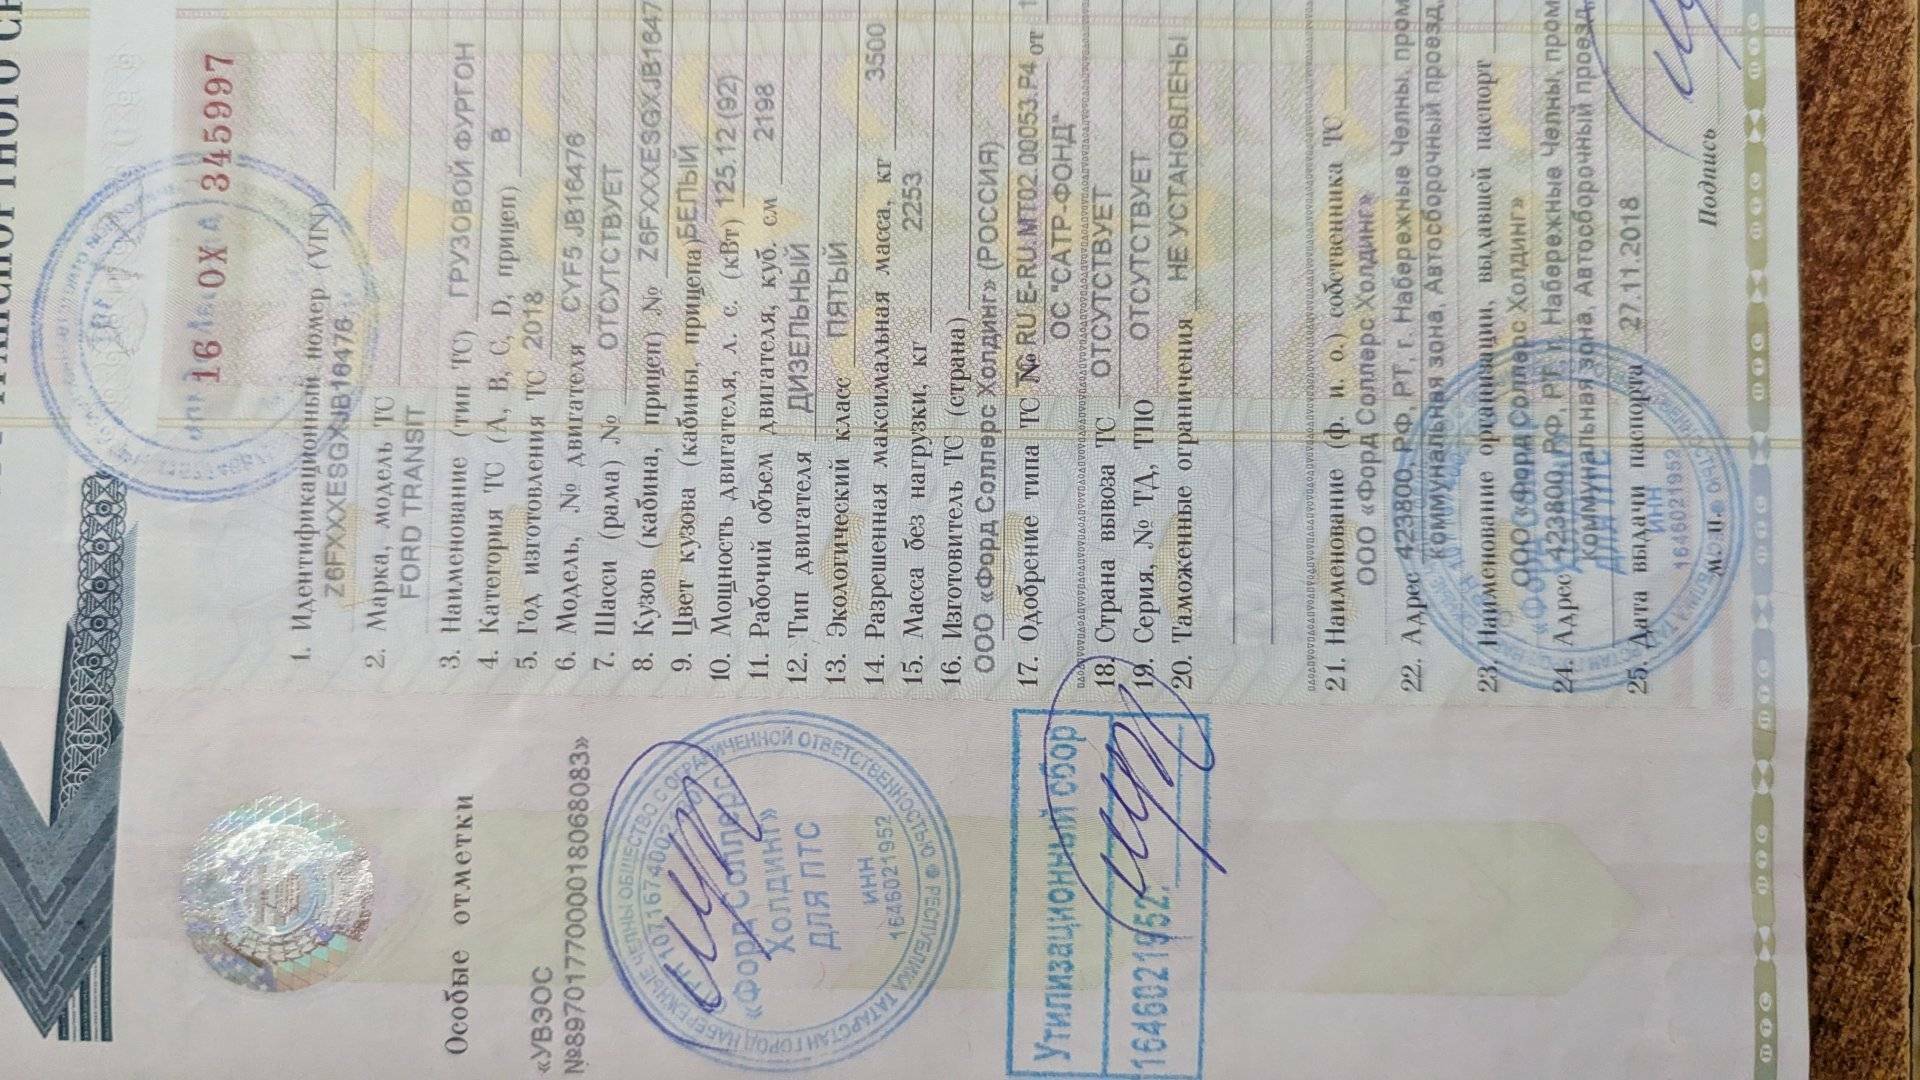 16 ОХ 345997
1. Идентификационный номер (VIN)
Z6FXXXESGXJB16476
2. Марка, модель ТС
FORD TRANSIT
3. Наименование (тип ТС) ГРУЗОВОЙ ФУРГОН
4. Категория ТС (А, В, С, D, прицеп) В
5. Год изготовления ТС 2018
6. Модель, № двигателя CYF5 JB16476
7. Шасси (рама) № ОТСУТСТВУЕТ
8. Кузов (кабина, прицеп) № Z6FXXXESGXJB1647
9. Цвет кузова (кабины, прицепа) БЕЛЫЙ
10. Мощность двигателя, л. с. (кВт) 125.12 (92)
11. Рабочий объем двигателя, куб. см 2198
12. Тип двигателя ДИЗЕЛЬНЫЙ
13. Экологический класс ПЯТЫЙ
14. Разрешенная максимальная масса, кг 3500
15. Масса без нагрузки, кг 2253
16. Изготовитель ТС (страна)
ООО «Форд Соллерс Холдинг» (РОССИЯ)
17. Одобрение типа ТС № RU E-RU.MT02.00053.P4 от
ОС "САТР-ФОНД"
18. Страна вывоза ТС ОТСУТСТВУЕТ
19. Серия, № ТД, ТПО ОТСУТСТВУЕТ
20. Таможенные ограничения НЕ УСТАНОВЛЕНЫ
21. Наименование (ф. и. о.) собственника ТС
ООО «Форд Соллерс Холдинг»
22. Адрес 423800, РФ, РТ, г. Набережные Челны, пром
коммунальная зона, Автосборочный проезд,
23. Наименование организации, выдавшей паспорт
ООО «Форд Соллерс Холдинг»
24. Адрес 423800, РФ, РТ, г. Набережные Челны, пром
коммунальная зона, Автосборочный проезд,
25. Дата выдачи паспорта 27.11.2018
М. П.
Подпись
ИНН
1646021952
Особые отметки
«УВЭОС
№8970177000018068083»
«Форд Соллерс
Холдинг»
ДЛЯ ПТС
ИНН
1646021952
Утилизационный сбор
1646021952